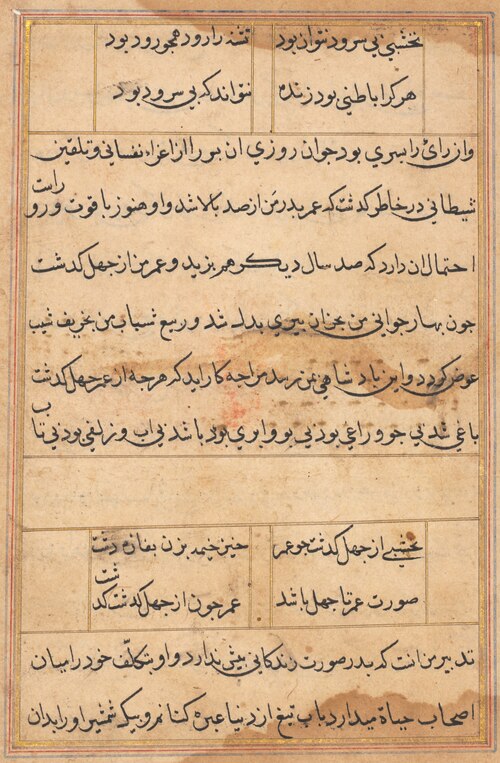 نخشبی بی سرود نتوان بود
تشنه را رود همجو رود بود
هر کرا باطنی بود زنده
نتواند که بی سرود بود
وان رای را پسری بود جوان روزی ان پور را از اغراء نفسانی و تلقین
شیطانی در خاطر کذشت که عمر پدر من از صد بالا شد و او هنوز با قوت و رو راست
احتمال ان دارد که صد سال دیکر هم بزید و عمر من از جهل کذشت
جون بهار جوانی من بخزان پیری بدل شد و ربیع شباب من بخریف شیب
عوض کردد و این باد شاهی بمن رسد مرا جه کار اید که هرجه از عمر جهل کذشت
باغی شد بی جو و راغی بود بی بو و ابری بود باشد بی اب و زلفی بود بی تاب
نخشبی از جهل کذشت جو عمر
خیز خیمه بزن بغازه دشت
صورت عمر تا جهل باشد
عمر جون از جهل کذشت کذشت
تدبیر من انست که پدر صورت زندکانی بیش ندارد و او بتکلف خود را میان
اصحاب حیاة میدارد باب تیغ از دنیا عبره کنانم و بیک شمشیر او را بدان